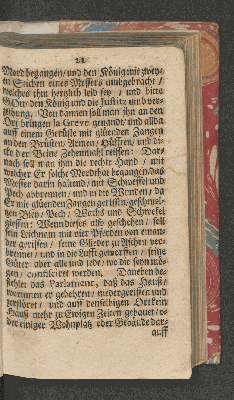 21
Mord begangen/ und den König mit zwey-
en Stichen eines Messers umbgebracht/
welches ihm hertzlich leid sey / und bitte
GOtt/ den König und die Justitz umb ver-
zeihung: Von dannen soll man ihn an den
Ort bringen la Greve genandt/ und allda
auff einem Gerüste mit glüenden Zangen
an den Brüsten/ Armen/ Hüfften/ und di-
cke der Beine Zehenmahl reissen: Dar-
nach soll man ihm die rechte Hand / mit
welcher Er solche Mordthat begangen/ das
Messer darin haltend/ mit Schwefel und
Pech abbrennen/ und in die Wunden/ da
Er mit glüenden Zangen gerissen/ geschmol-
tzen Bley/ Pech/ Wachs und Schwefel
giessen: Wenn dieses also geschehen/ soll
sein Leichnam mit vier Pferden von einan-
der gerissen/ seine Glieder zu Aschen ver-
brennet/ und in die Lufft geworffen/ seine
Güter aber alle und jede/ wo die seyn mö-
gen/ confisciret werden. Daneben be-
fiehlet das Parlament, daß das Hauß/
worinnen er gebohren/ niedergerissen und
zerstöret/ und auff demselbigen Ort kein
Hauß mehr zu Ewigen Zeiten gebauet/ o-
der einiger Wohnplatz oder Gebäude dar-
auff